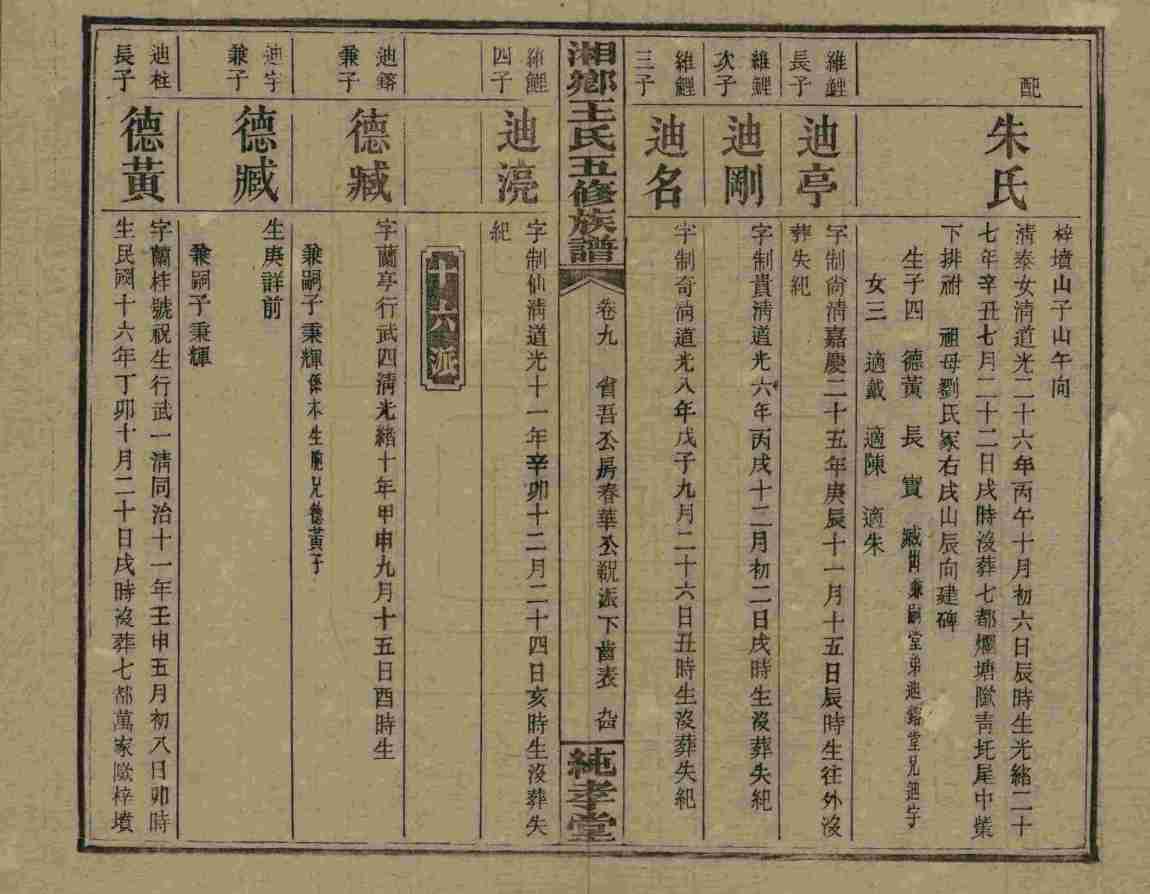 梓墳山子山午向
配
朱氏
清泰女清道光二十六年丙午十月初六日辰時生光緒二十
七年辛丑七月二十二日戌時沒葬七都爛塘 青圫屋中業
下排祔 祖母劉氏冢右戌山辰向建碑
生子四 德黃 長 寶 臧出兼嗣堂弟迪鎔堂兄迪字
女三 適戴 適陳 適朱
維鯉
長子
迪亭
字制尙清嘉慶二十五年庚辰十一月十五日辰時生往外沒
葬失紀
維鯉
次子
迪剛
字制貴清道光六年丙戌十二月初二日戌時生沒葬失紀
維鯉
三子
迪名
字制奇淸道光八年戊子九月二十六日丑時生沒葬失紀
湘鄉王氏五修族譜
卷九 省吾公房春華公派下齒表
純孝堂
維鯉
四子
迪澆
字制仙清道光十一年辛卯十二月二十四日亥時生沒葬失
紀
六派
迪鎔
兼子
德臧
字蘭亭行武四清光緒十年甲申九月十五日酉時生
兼嗣子秉輝係本生胞兄德黃子
迪字
兼子
德臧
生庚詳前
兼嗣子秉輝
迪柱
長子
德黃
字蘭桂號祝生行武一清同治十一年壬申五月初八日卯時
生民國十六年丁卯十月二十日戌時沒葬七都萬家 梓墳